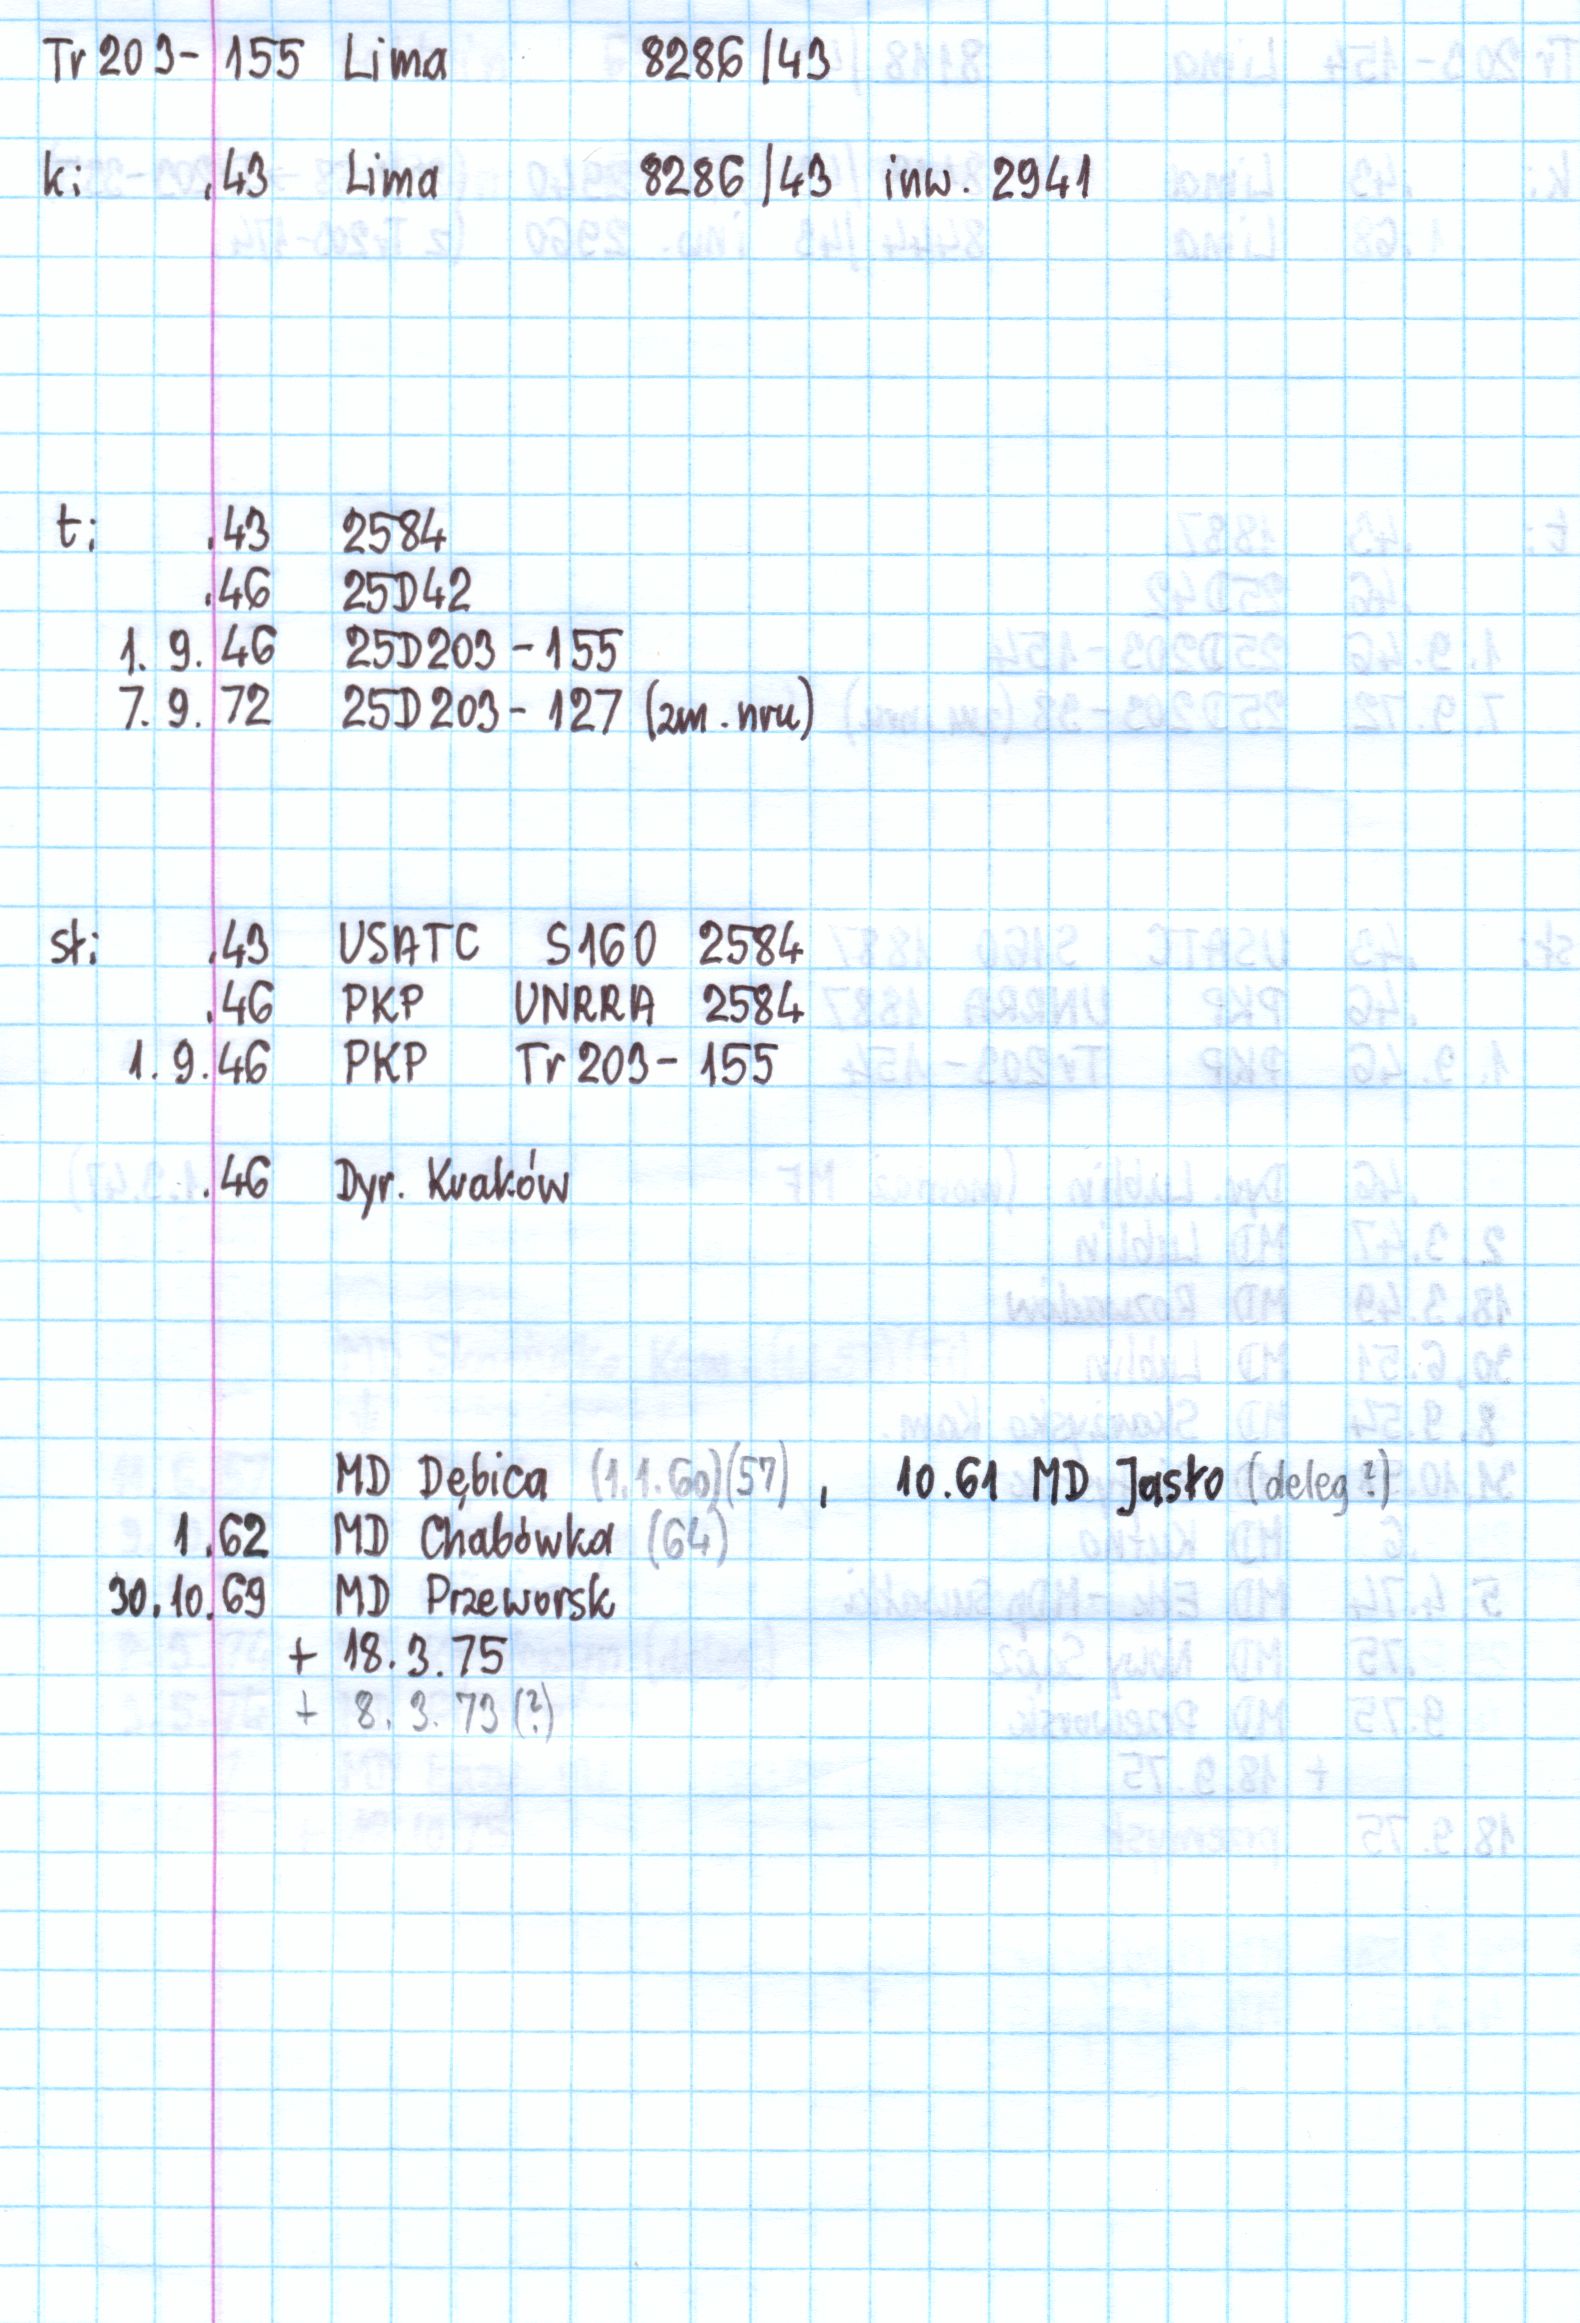 Tr 203-155 Lima 8286/43
k: .43 Lima 8286/43 inw. 2941
t: .43 2584
.46 25D42
1. 9. 46 25D203-155
7. 9. 72 25D203-127 (zm. nru)
st: .43 USATC S160 2584
.46 PKP UNRRA 2584
1. 9. 46 PKP Tr 203-155
.46 Dyr. Kraków
MD Dębica (1.1.60)(57), 10.61 MD Jasło (deleg?)
1.62 MD Chabówka (64)
30.10.69 MD Przeworsk
+ 18.3.75
+ 8.3.73 (?)